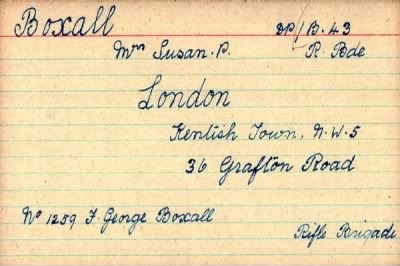 Boxall
Mrs Susan. P. DP/B. 43
R. Bde
London
Kentish Town, N.W.5
36 Grafton Road
No 1259 F. George Boxall
Rifle Brigade